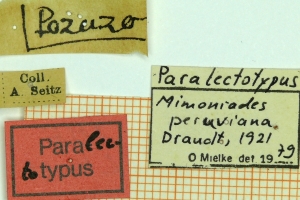 Pozuzo
Coll.
A. Seitz
Paralec-
totypus
Paralectotypus
Mimoniades
peruviana
Draudt, 1921
O Mielke det 1979